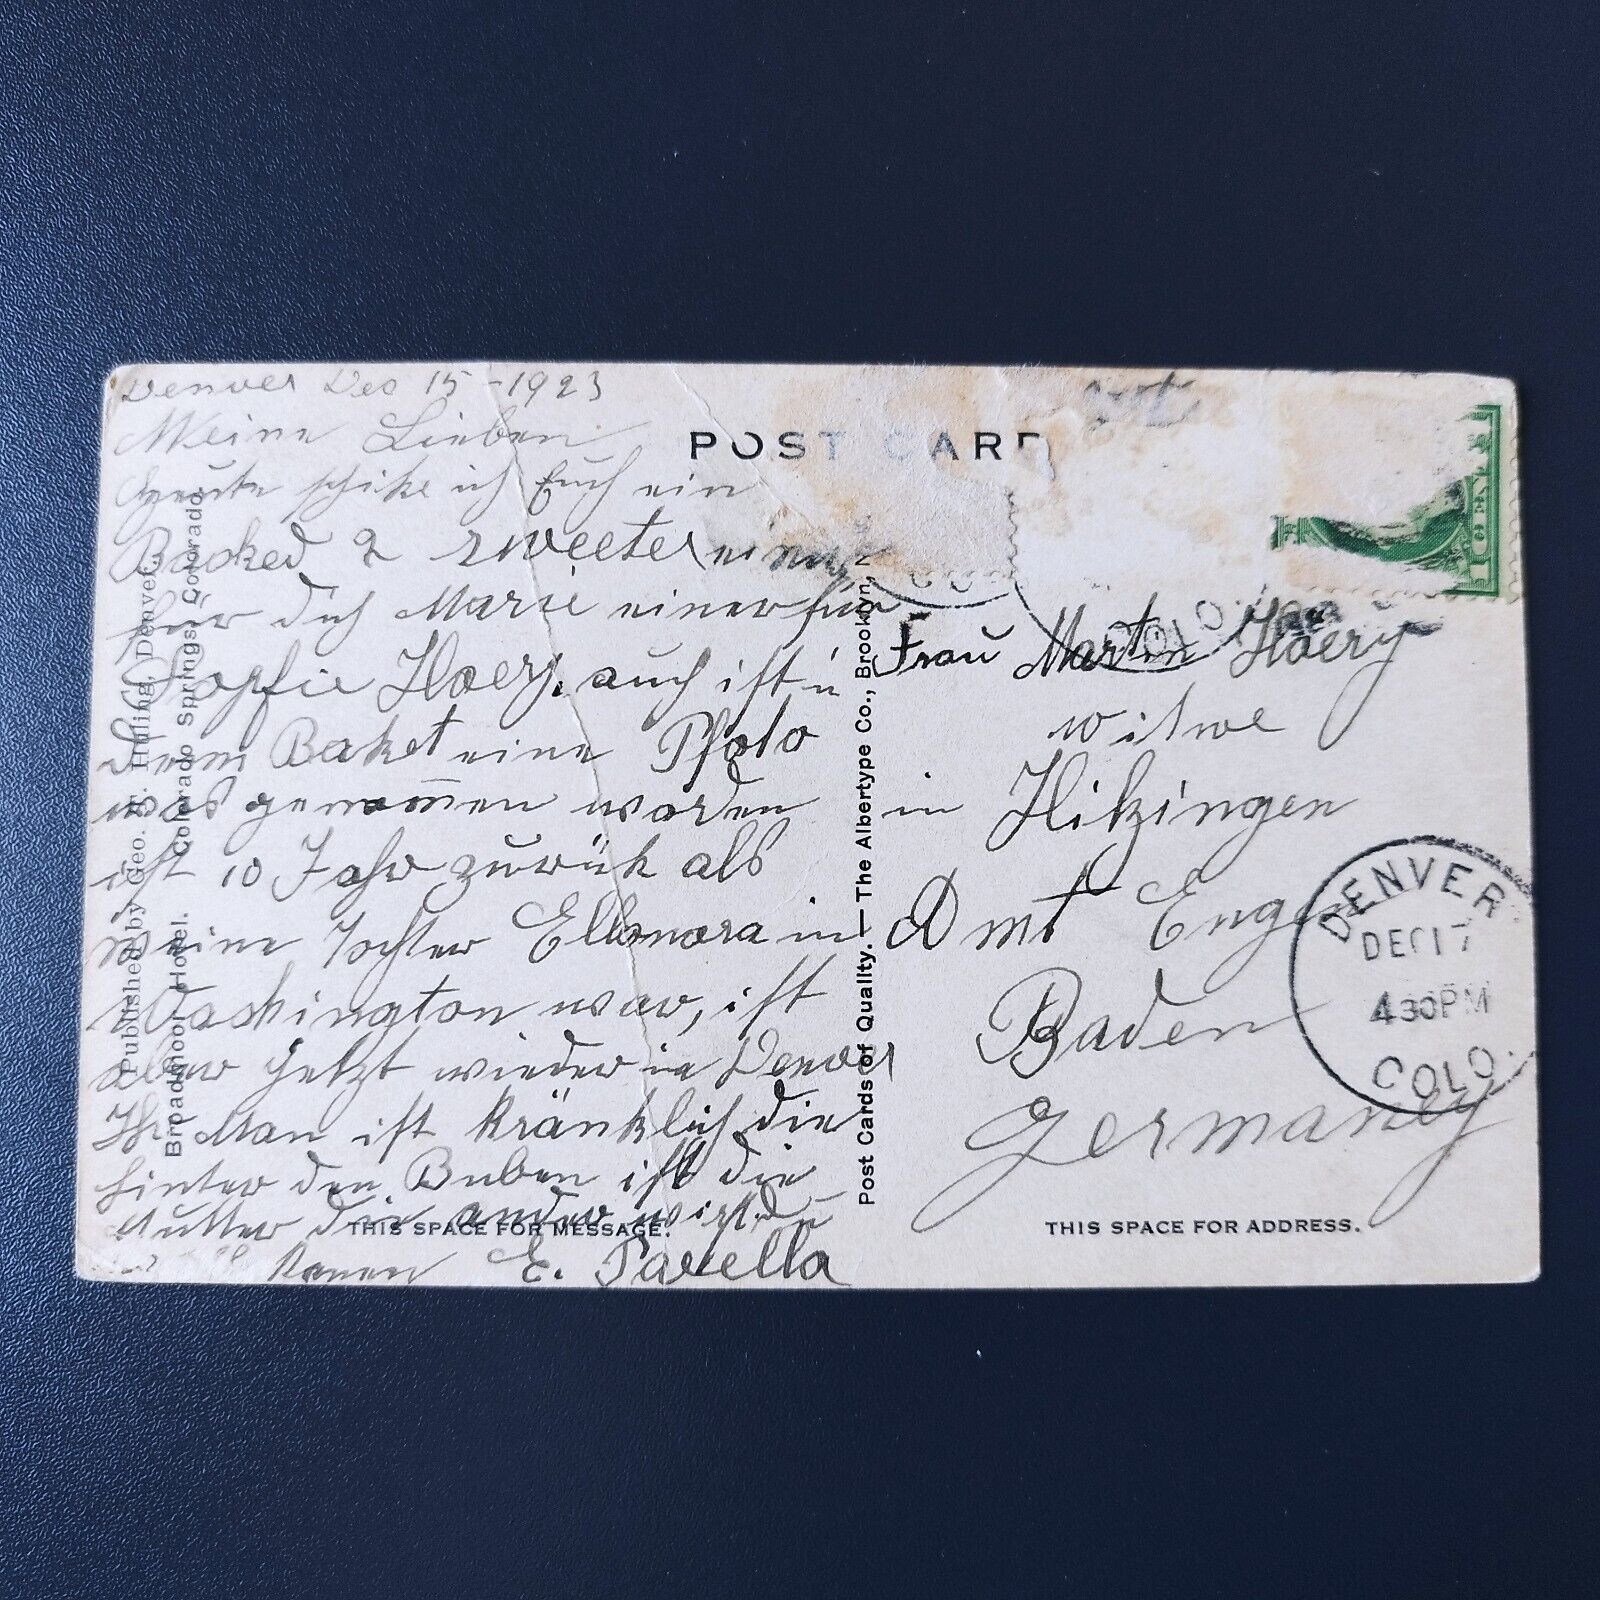 Denver Dec 15 - 1923
Meine Lieben
Heute schike ich Euch ein
Backed 2 sweeter einer
für dich Marie einer für
Sophie Hoery. auch ist in
dem Baket eine Photo
was genommen worden
ist 10 Jahr zurük als
meine Tochter Ellonora in
Washington war, ist
aber Jetzt wieder in Denver
Ihr Man ist kränklich die
hinter den Buben ist die
Mutter die ander wirst du
kennen E. Parella
POST CARD
Frau Martin Hoery
witwe
in Hilzingen
Amt Engen
Baden
Germaney
DENVER
DEC 17
430PM
COLO.
COLO.
Published by Geo. H. Huling, Denver.
Broadmoor Hotel. Colorado Springs, Colorado.
Post Cards of Quality. — The Albertype Co., Brooklyn, N
THIS SPACE FOR MESSAGE.
THIS SPACE FOR ADDRESS.